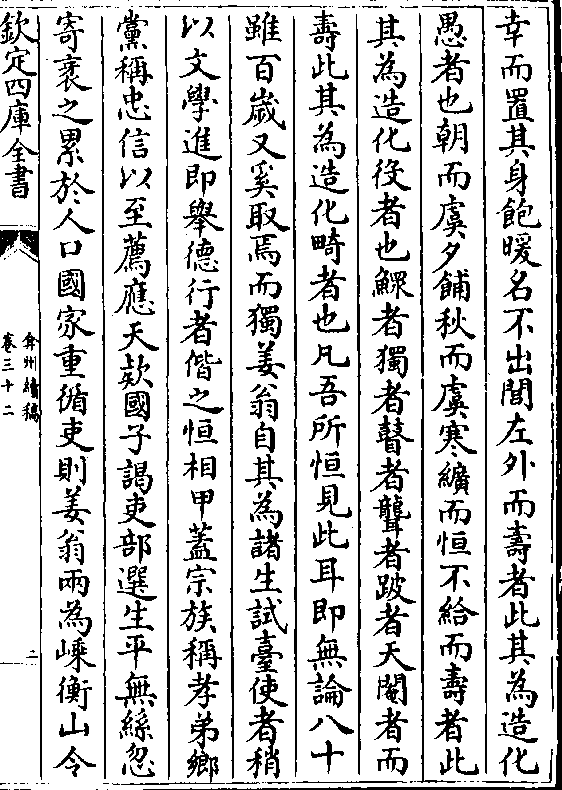 幸而置其身飽暖名不出閭左外而壽者此其為造化
愚者也朝而虞夕餔秋而虞寒纊而恒不給而壽者此
其為造化役者也鰥者獨者瞽者聾者跛者天閹者而
壽此其為造化畸者也凡吾所恒見此耳即無論八十
雖百歲又奚取焉而獨姜翁自其為諸生試臺使者稍
以文學進即舉德行者偕之恒相甲葢宗族稱孝弟鄉
黨稱忠信以至薦應天欵國子謁吏部選生平無絲忽
寄衺之累於人口國家重循吏則姜翁兩為嵊衡山令
欽定四庫全書
弇州續稿
卷三十二
二